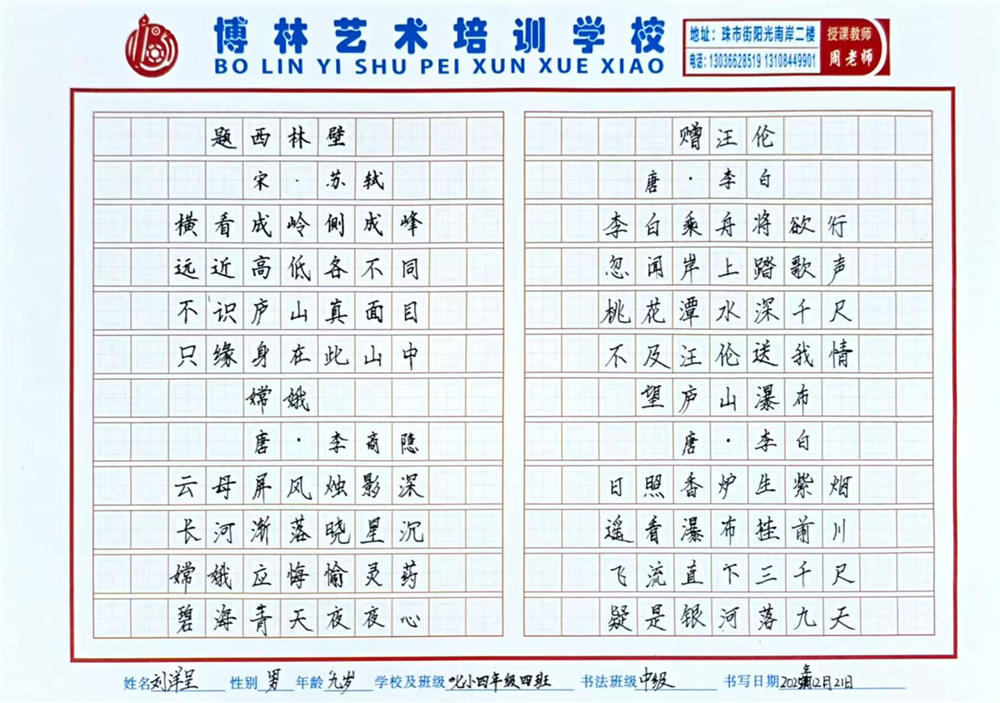 博林艺术培训学校
BO LIN YI SHU PEI XUN XUE XIAO
地址：珠市街阳光南岸二楼
电话：13036628519 13108449901
授课教师
周老师
题西林壁
宋·苏轼
横看成岭侧成峰
远近高低各不同
不识庐山真面目
只缘身在此山中
嫦娥
唐·李商隐
云母屏风烛影深
长河渐落晓星沉
嫦娥应悔愉灵药
碧海青天夜夜心
赠汪伦
唐·李白
李白乘舟将欲行
忽闻岸上踏歌声
桃花潭水深千尺
不及汪伦送我情
望庐山瀑布
唐·李白
日照香炉生紫烟
遥看瀑布挂前川
飞流直下三千尺
疑是银河落九天
姓名 刘洋呈 性别 男 年龄 九岁 学校及班级 小四年级四班 书法班级 中级 书写日期 年12月21日